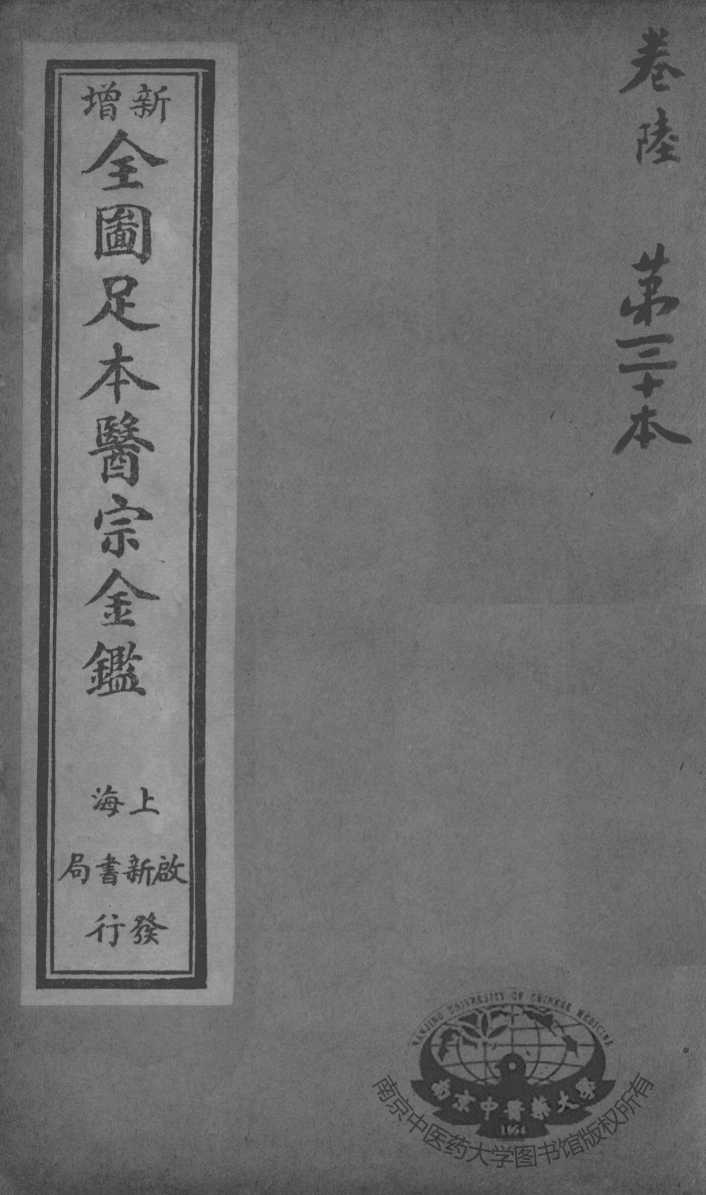 卷陸 第三十本
新增
全圖足本醫宗金鑑
上海
啟新書局
發行
NANJING UNIVERSITY OF CHINESE MEDICINE
南京中醫藥大學
1954
南京中医药大学图书馆版权所有